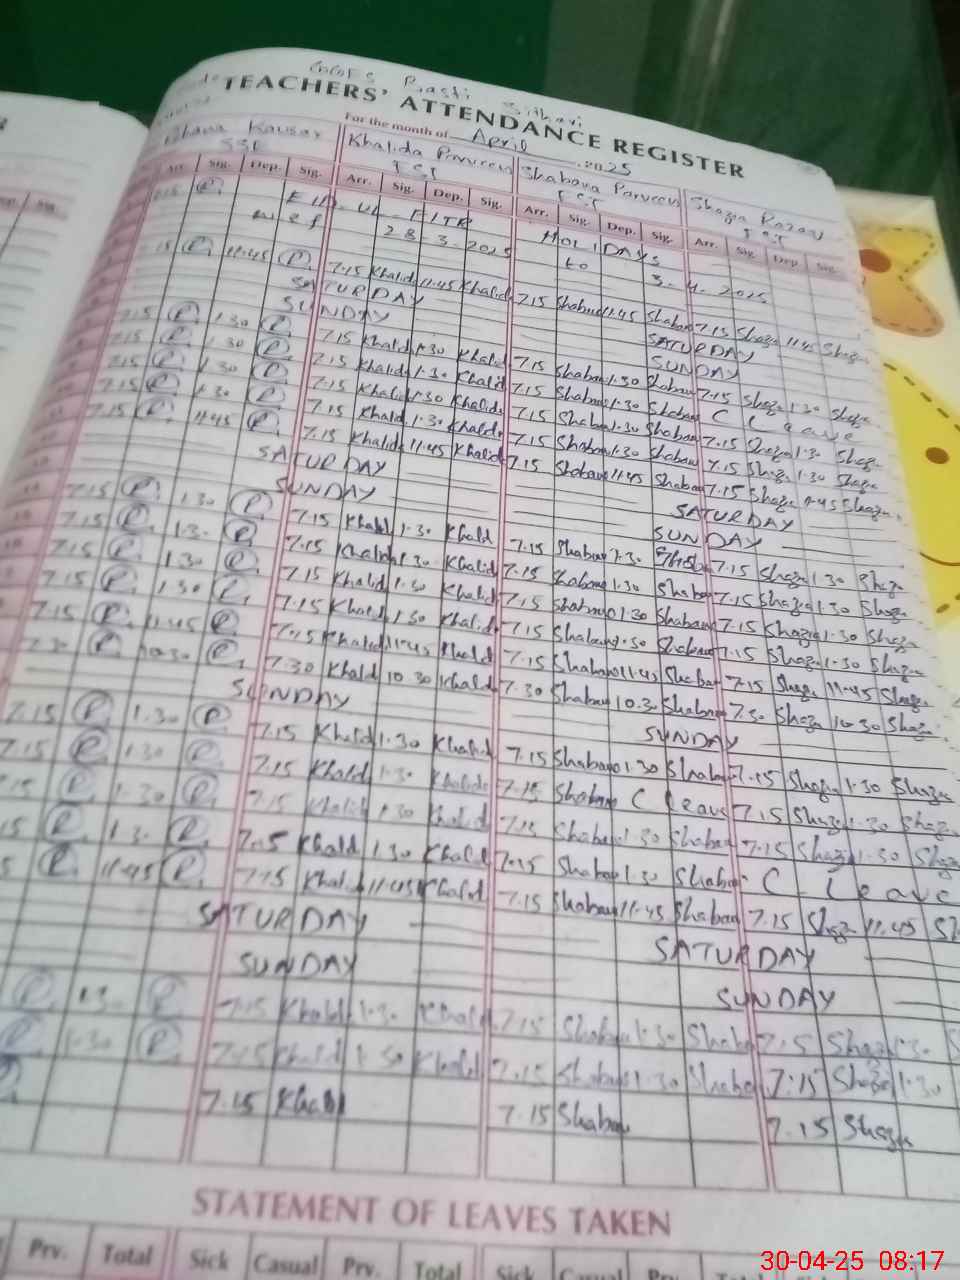 GGES Basti
TEACHERS' ATTENDANCE REGISTER
For the month of April 2025
Kausar Khalida Parveen Shabana Parveen Shazia
SSE EST EST EST
Arr. Sig. Dep. Sig. Arr. Sig. Dep. Sig. Arr. Sig. Dep. Sig. Arr. Sig. Dep. Sig.
7.15 P EID-UL-FITR HOLIDAYS
w.e.f 28-3-2025 to 3-4-2025
7.15 P 11.45 P 7.15 Khalid 11.45 Khalid 7.15 Shaban 11.45 Shaban 7.15 Shazia 11.45 Shazia
SATURDAY SATURDAY
SUNDAY SUNDAY
7.15 P 1.30 P 7.15 Khalid 1.30 Khalid 7.15 Shaban 1.30 Shaban 7.15 Shazia 1.30 Shazia
P 1.30 P 7.15 Khalid 1.30 Khalid 7.15 Shaban 1.30 Shaban C Leave
7.15 P 1.30 P 7.15 Khalid 1.30 Khalid 7.15 Shaban 1.30 Shaban 7.15 Shazia 1.30 Shazia
7.15 P 1.30 P 7.15 Khalid 1.30 Khalid 7.15 Shaban 1.30 Shaban 7.15 Shazia 1.30 Shazia
7.15 P 11.45 P 7.15 Khalid 11.45 Khalid 7.15 Shaban 11.45 Shaban 7.15 Shazia 11.45 Shazia
SATURDAY SATURDAY
SUNDAY SUNDAY
7.15 P 1.30 P 7.15 Khalid 1.30 Khalid 7.15 Shaban 1.30 7.15 Shazia 1.30 Shazia
7.15 P 1.30 P 7.15 Khalid 1.30 Khalid 7.15 Shaban 1.30 Shaban 7.15 Shazia 1.30 Shazia
7.15 P 1.30 P 7.15 Khalid 1.30 Khalid 7.15 Shaban 1.30 Shaban 7.15 Shazia 1.30 Shazia
7.15 P 1.30 P 7.15 Khalid 1.30 Khalid 7.15 Shaban 1.30 Shaban 7.15 Shazia 1.30 Shazia
7.15 P 11.45 P 7.15 Khalid 11.45 Khalid 7.15 Shaban 11.45 Shaban 7.15 Shazia 11.45 Shazia
7.30 P 10.30 P 7.30 Khalid 10.30 Khalid 7.30 Shaban 10.30 Shaban 7.30 Shazia 10.30 Shazia
SUNDAY SUNDAY
7.15 P 1.30 P 7.15 Khalid 1.30 Khalid 7.15 Shaban 1.30 Shaban 7.15 Shazia 1.30 Shazia
7.15 P 1.30 P 7.15 Khalid 1.30 Khalid 7.15 Shaban C Leave 7.15 Shazia 1.30 Shazia
P 1.30 P 7.15 Khalid 1.30 Khalid 7.15 Shaban 1.30 Shaban 7.15 Shazia 1.30 Shazia
P 1.30 P 7.15 Khalid 1.30 Khalid 7.15 Shaban 1.30 Shaban C Leave
P 11.45 P 7.15 Khalid 11.45 Khalid 7.15 Shaban 11.45 Shaban 7.15 Shazia 11.45
SATURDAY SATURDAY
SUNDAY SUNDAY
P 1.30 P 7.15 Khalid 1.30 Khalid 7.15 Shaban 1.30 Shaban 7.15 Shazia 1.30
P 1.30 P 7.15 Khalid 1.30 Khalid 7.15 Shaban 1.30 Shaban 7.15 Shazia 1.30
7.15 Khalid 7.15 Shaban 7.15 Shazia
STATEMENT OF LEAVES TAKEN
Prv. Total Sick Casual Prv. Total Sick Casual Prv. Total
30-04-25 08:17